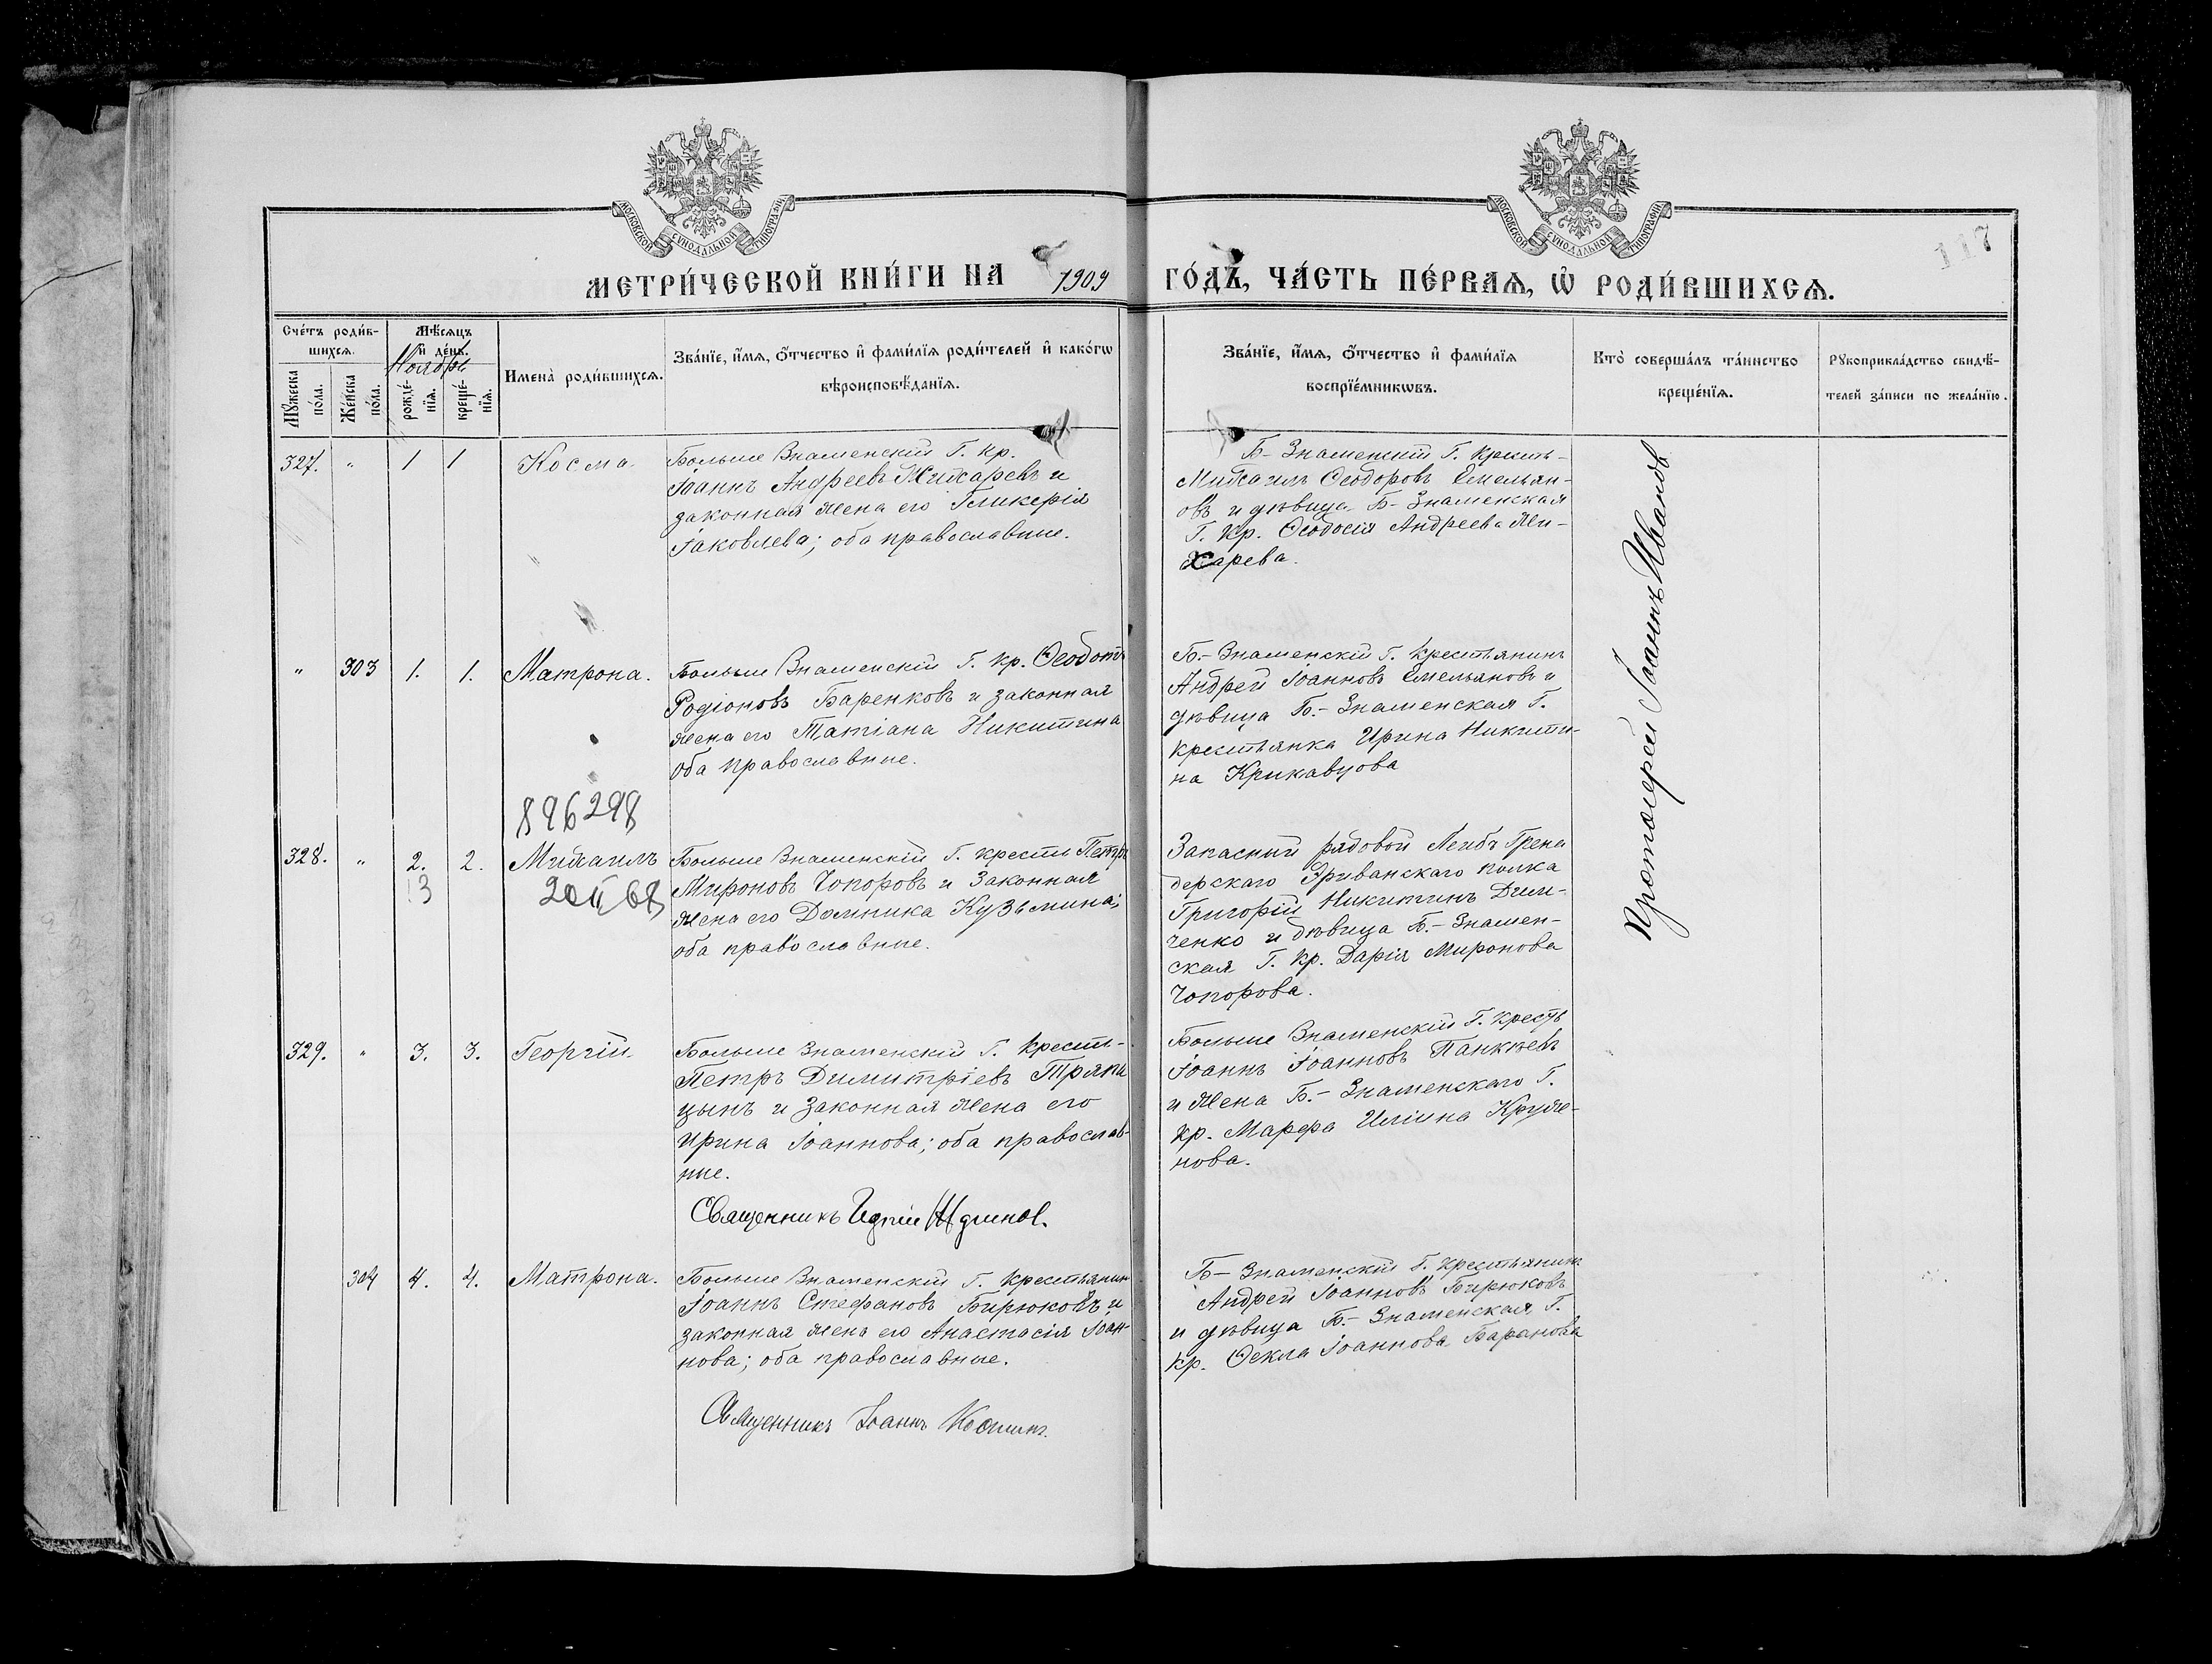 МОСКОВСКОЙ СѴНОДАЛЬНОЙ ТИПОГРАФІИ
МОСКОВСКОЙ СѴНОДАЛЬНОЙ ТИПОГРАФІИ
117
МЕТРИ́ЧЕСКОЙ КНИ́ГИ НА 1909 ГО́ДЪ, ЧА́СТЬ ПЕ́РВАѦ, Ѡ҆ РОДИ́ВШИХСѦ.
Сче́тъ роди́в-
шихсѧ.
Мѣ́сѧцъ
и҆ де́нь.
Ноябрь
Мꙋ́жеска
по́ла.
Же́нска
по́ла.
рожде́-
нїѧ.
креще́-
нїѧ.
Имена̀ роди́вшихсѧ.
Зва́нїе, и҆́мѧ, ѻ҆́тчество и҆ фами́лїѧ роди́телей и҆ како́гѡ
вѣроисповѣ́данїѧ.
Зва́нїе, и҆́мѧ, ѻ҆́тчество и҆ фами́лїѧ
воспрїе́мникѡвъ.
Кто̀ соверша́лъ та́инство
креще́нїѧ.
Рꙋкоприкла́дство свидѣ́-
телей за́писи по жела́нїю.
327. " 1 1 Косма.
Больше Знаменскій Г. кр.
Іоаннъ Андреевъ Жихаревъ и
законная жена его Гликерія
Іаковлева; оба православные.
Б- Знаменскій Г. крест-
Михаилъ Ѳеодоровъ Емельян-
овъ и дѣвица Б- Знаменская
Г. кр. Ѳеодосія Андреева Жи-
харева.
" 303 1. 1. Матрона.
Больше Знаменскій Г. кр. Ѳеодотъ
Родіоновъ Баренковъ и законная
жена его Татіана Никитина
оба православные.
Б.- Знаменскій Г. крестьянинъ
Андрей Іоанновъ Емельяновъ и
дѣвица Б.- Знаменская Г.
крестьянка Ирина Никити-
на Крикавцова
896298
328. " 2. 2. Михаилъ
13
20 II 68
Больше Знаменскій Г. крест Петръ
Мироновъ Чопоровъ и Законная
жена его Домника Кузьмина;
оба православные.
Запасный рядовой Лейбъ Грена
дерскаго Эриванскаго полка
Григорій Никитинъ Дим-
ченко и дѣвица Б.- Знамен-
ская Г. кр. Дарія Миронова
Чопорова.
329. " 3. 3. Георгій.
Больше Знаменскій Г. крест-
Петръ Димитріевъ Тряпи
цынъ и Законная жена его
Ирина Іоаннова; оба православ-
ные.
Священникъ
Больше Знаменскій Г. кресть
Іоаннъ Іоанновъ Панкѣевъ
и жена Б.- Знаменскаго Г.
кр. Марѳа Иліина Круже-
нова.
304 4. 4. Матрона.
Больше Знаменскій Г. крестьянин
Іоаннъ Стефановъ Бирюковъ и
законная жена его Анастасія Іоан-
нова; оба православные.
Священникъ Іоаннъ
Б- Знаменскій Г. крестьянинъ
Андрей Іоанновъ Бирюковъ
и дѣвица Б.- Знаменская Г.
кр. Ѳекла Іоаннова Баранова
Протоіерей Іоаннъ Ивановъ